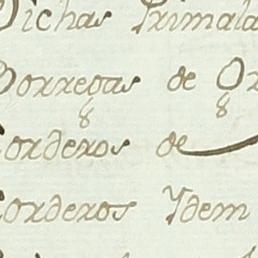 Dichas Primala
Borregas de Or
8 8
Corderos de
Corderos Ydem